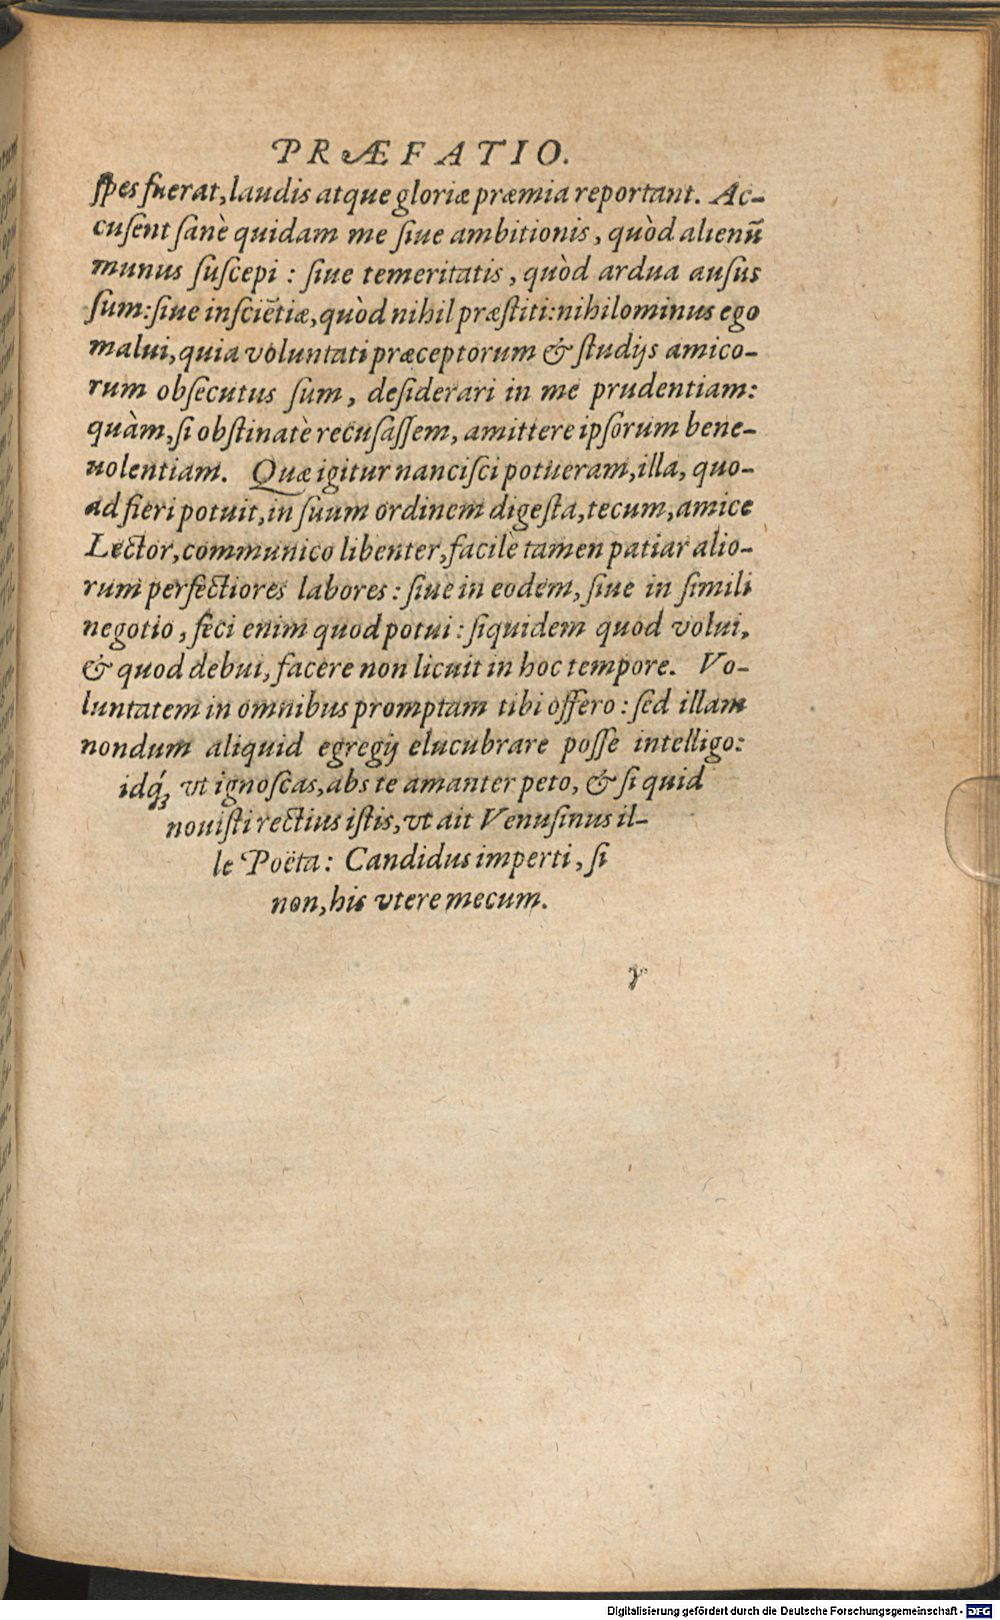 PRÆFATIO.
ſpes fuerat, laudis atque gloriæ præmia reportant. Ac-
cuſent ſanè quidam me ſiue ambitionis, quòd alienū
munus ſuſcepi: ſiue temeritatis, quòd ardua auſus
ſum: ſiue inſciētiæ, quòd nihil præſtiti: nihilominus ego
malui, quia voluntati præceptorum & ſtudijs amico-
rum obſecutus ſum, deſiderari in me prudentiam:
quàm, ſi obſtinatè recuſaſſem, amittere ipſorum bene-
uolentiam. Quæ igitur nanciſci potueram, illa, quo-
ad fieri potuit, in ſuum ordinem digeſta, tecum, amice
Lector, communico libenter, facilè tamen patiar alio-
rum perfectiores labores: ſiue in eodem, ſiue in ſimili
negotio, feci enim quod potui: ſiquidem quod volui,
& quod debui, facere non licuit in hoc tempore. Vo-
luntatem in omnibus promptam tibi offero: ſed illam
nondum aliquid egregij elucubrare poſſe intelligo:
idq́ꝫ vt ignoſcas, abs te amanter peto, & ſi quid
nouiſti rectius iſtis, vt ait Venuſinus il-
le Poëta: Candidus imperti, ſi
non, his vtere mecum.
Digitalisierung gefördert durch die Deutsche Forschungsgemeinschaft - DFG